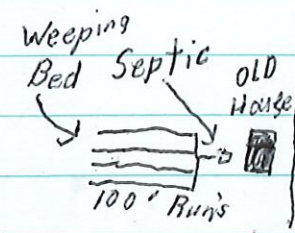 Weeping
Bed
Septic
OLD
House
100' Run's